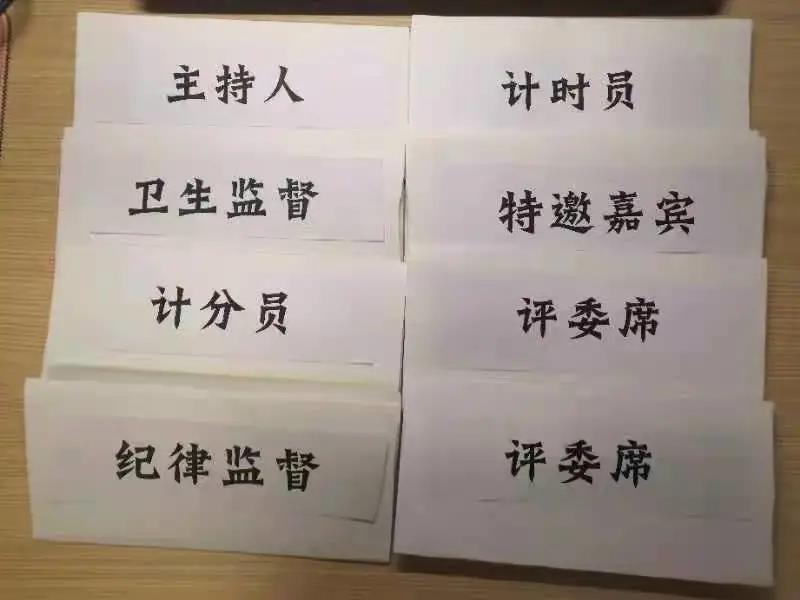 主持人
计时员
卫生监督
特邀嘉宾
计分员
评委席
纪律监督
评委席